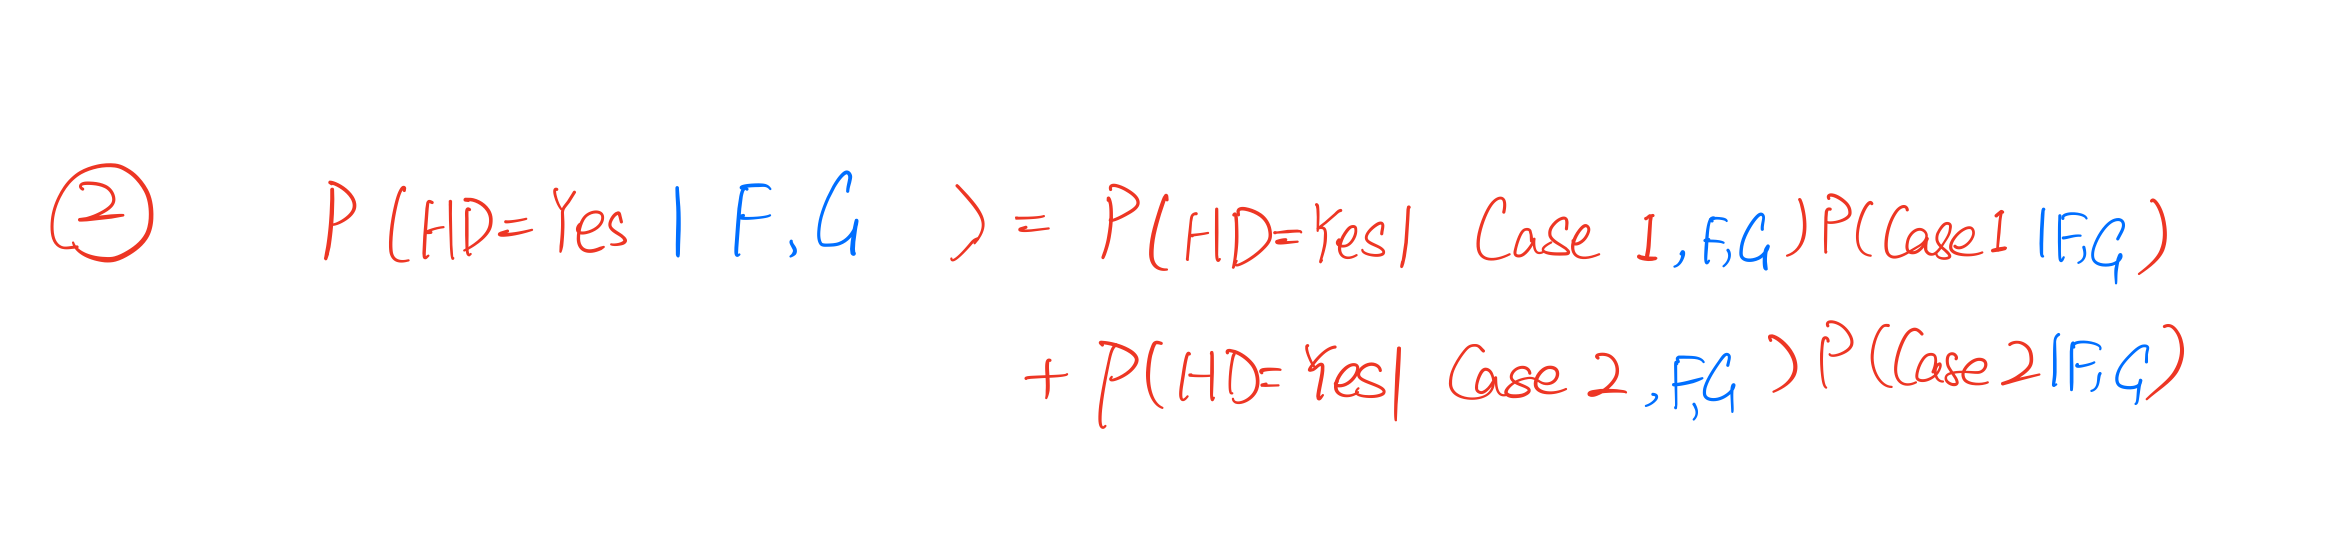 ② P(HD=Yes | F, G) = P(HD=Yes | Case 1, F, G) P(Case 1 | F, G)
+ P(HD=Yes | Case 2, F, G) P(Case 2 | F, G)